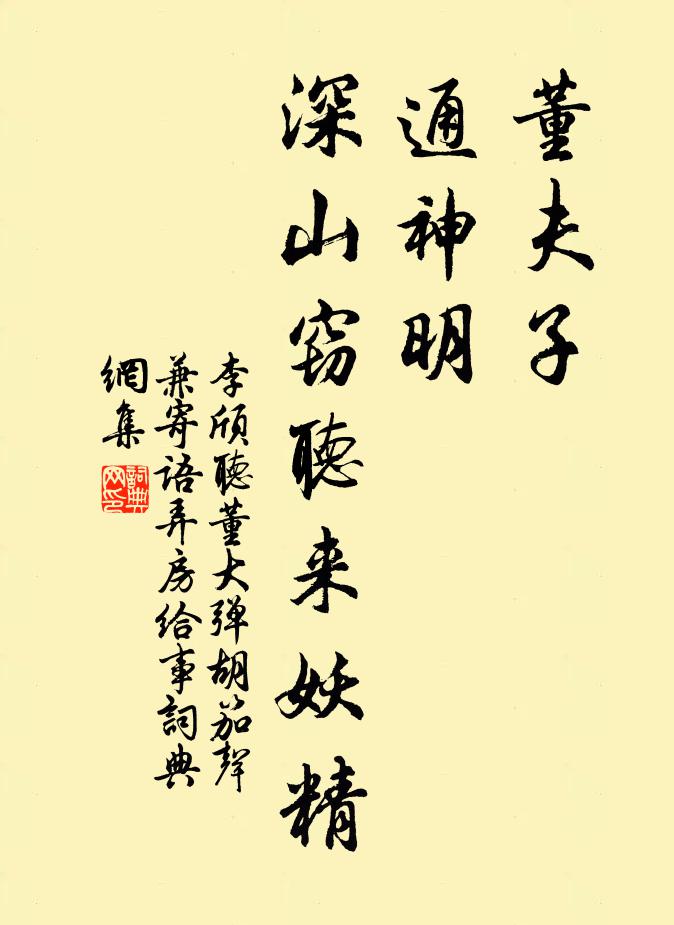 董夫子
通神明
深山窃聽来妖精
李頎聽董大弹胡笳聲
兼寄语弄房给事詞典
網集
詞典網印